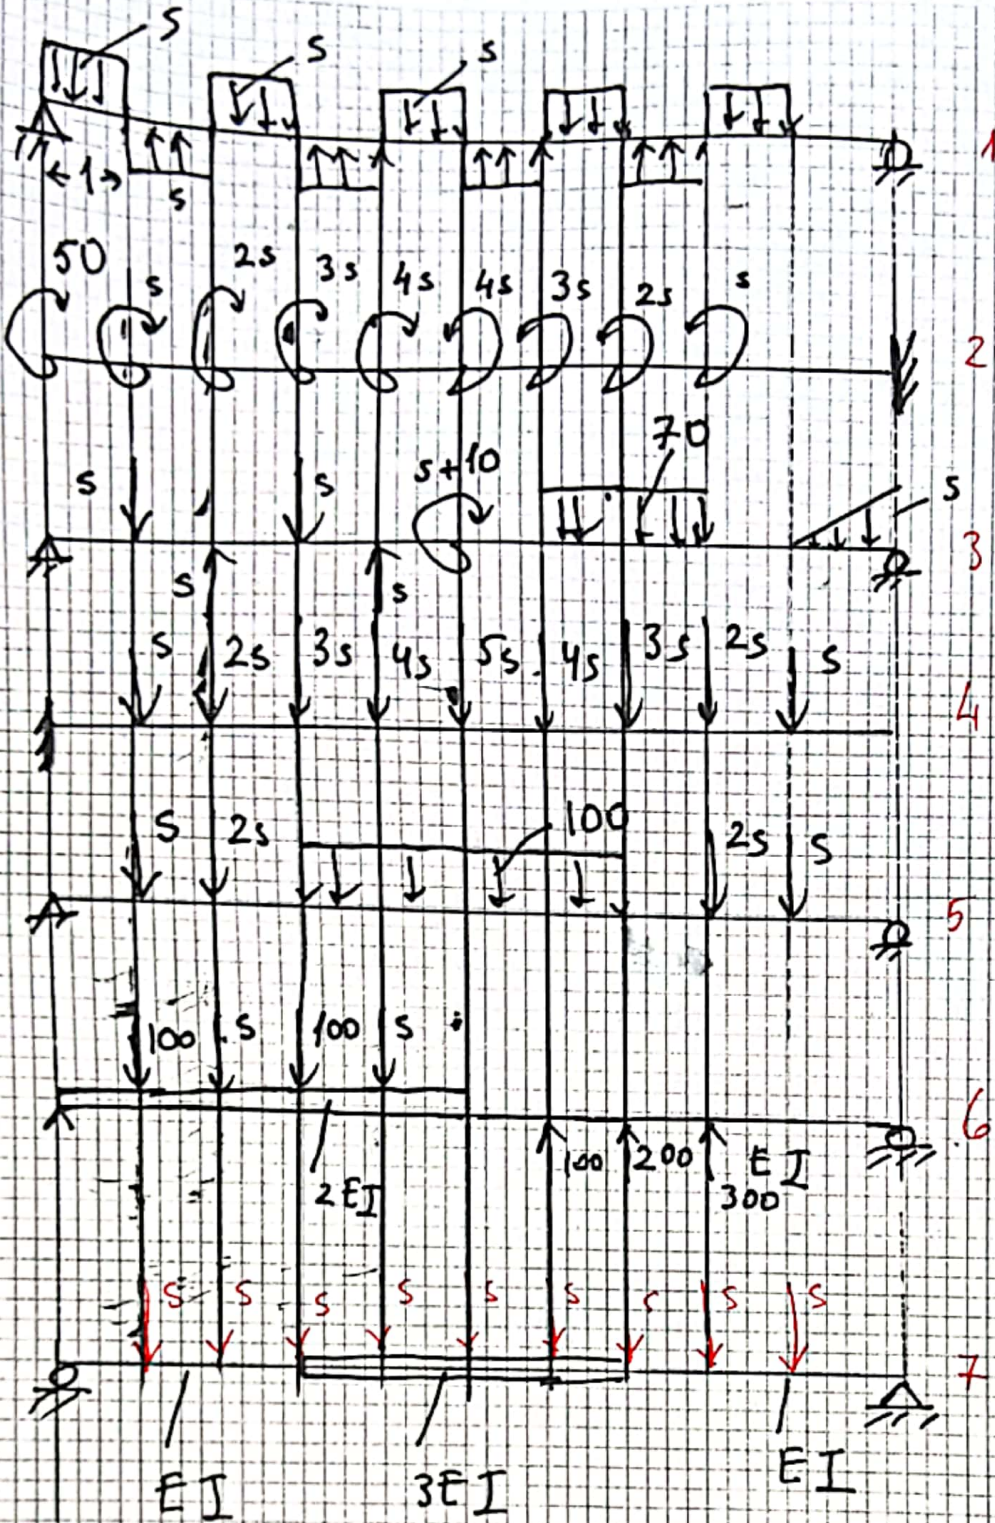 s s s
1
1
s
50 s 2s 3s 4s 4s 3s 2s s
2
70
s s s+10 s
3
s s
s 2s 3s 4s 5s 4s 3s 2s s
4
100
s 2s 2s s
5
100 s 100 s
6
100 200 EI
2EI 300
s s s s s s s s s
7
EI 3EI EI